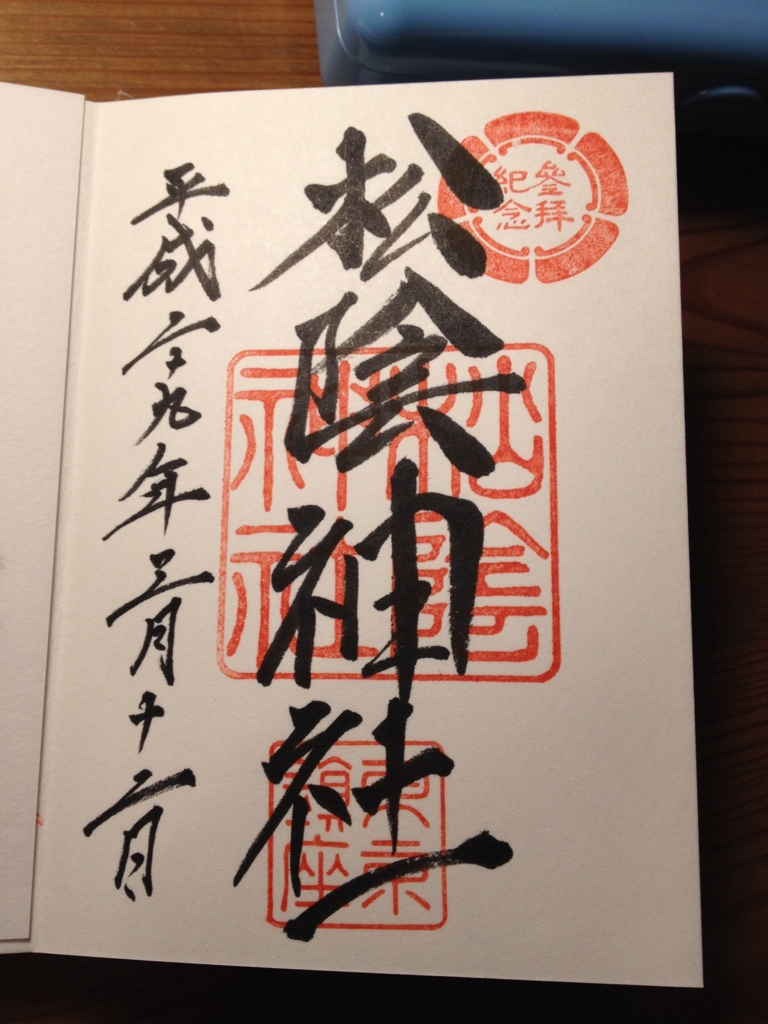 參拝
紀念
松陰神社
松陰
神社
東京
鎮座
平成二十九年三月十二日